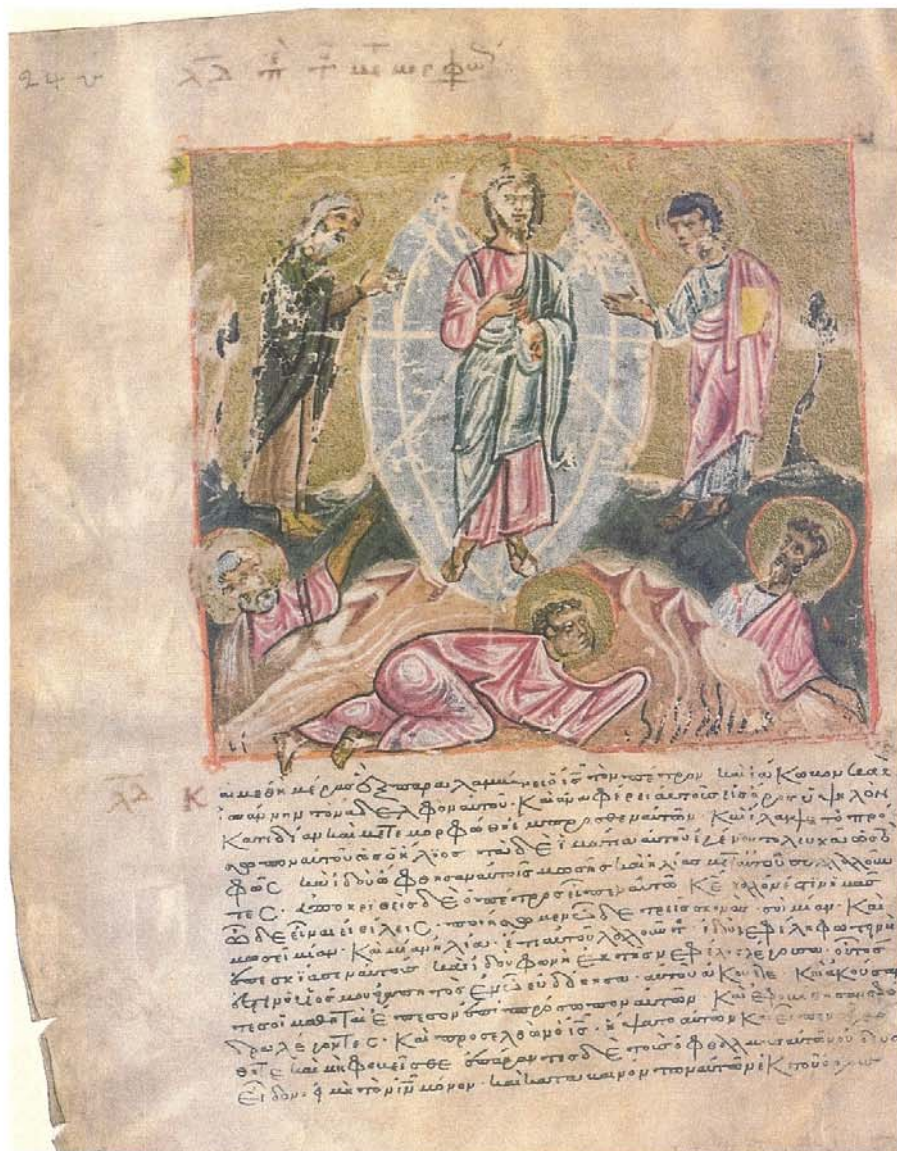 24 v
λδ
λδ Καὶ μεθ ἡμέρας ἓξ παραλαμβάνει ὁ ἰς τὸν πέτρον καὶ ἰάκωβον καὶ
ἰωάννην τὸν ἀδελφὸν αὐτοῦ· καὶ ἀναφέρει αὐτοὺς εἰς ὄρος ὑψηλὸν
κατιδίαν καὶ μετεμορφώθη ἔμπροσθεν αὐτῶν καὶ ἔλαμψε τὸ πρό
σωπον αὐτοῦ ὡς ὁ ἥλιος τὰ δὲ ἱμάτια αὐτοῦ ἐγένοντο λευκὰ ὡς τὸ
φῶς καὶ ἰδοὺ ὤφθησαν αὐτοῖς μωσῆς καὶ ἠλίας μετ αὐτοῦ συλλαλοῦν
τες· ἀποκριθεὶς δὲ ὁ πέτρος εἶπεν αὐτῶ κε καλόν ἐστιν ἡμᾶς
ὧδε εἶναι εἰ θέλεις· ποιήσωμεν ὧδε τρεῖς σκηνάς· σοὶ μίαν· καὶ
μωσεῖ μίαν· καὶ μίαν ἠλία· ἔτι αὐτοῦ λαλοῦντος ἰδοὺ νεφέλη φωτεινὴ
ἐπεσκίασεν αὐτοὺς καὶ ἰδοὺ φωνὴ ἐκ τῆς νεφέλης λέγουσα· οὗτός
ἐστιν ὁ υἱός μου ὁ ἀγαπητὸς ἐν ὧ εὐδόκησα· αὐτοῦ ἀκούετε καὶ ἀκούσαν
τες οἱ μαθηταὶ ἔπεσον ἐπὶ πρόσωπον αὐτῶν καὶ ἐφοβήθησαν σφό
δρα λέγοντες· καὶ προσελθὼν ὁ ἰς ἥψατο αὐτῶν καὶ εἶπεν ἐγέρ
θητε καὶ μὴ φοβεῖσθε ἐπάραντες δὲ τοὺς ὀφθαλμοὺς αὐτῶν οὐδένα
εἶδον· εἰ μὴ τὸν ἰν μόνον· καὶ καταβαινόντων αὐτῶν ἐκ τοῦ ὄρους